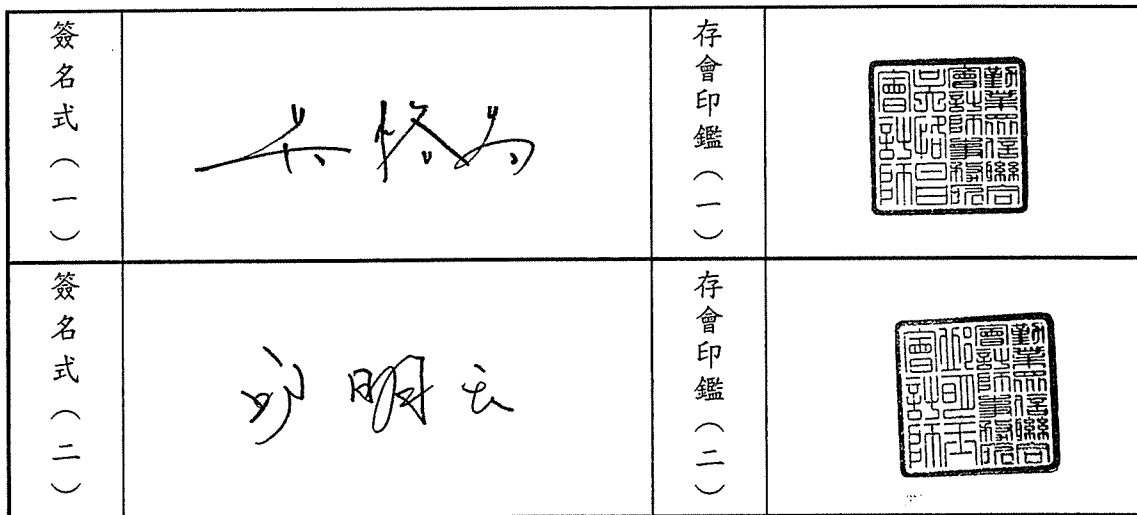 簽名式（一）
吳恪昌
存會印鑑（一）
勤業眾信聯合
會計師事務所
吳恪昌
會計師
簽名式（二）
邱明玉
存會印鑑（二）
勤業眾信聯合
會計師事務所
邱明玉
會計師